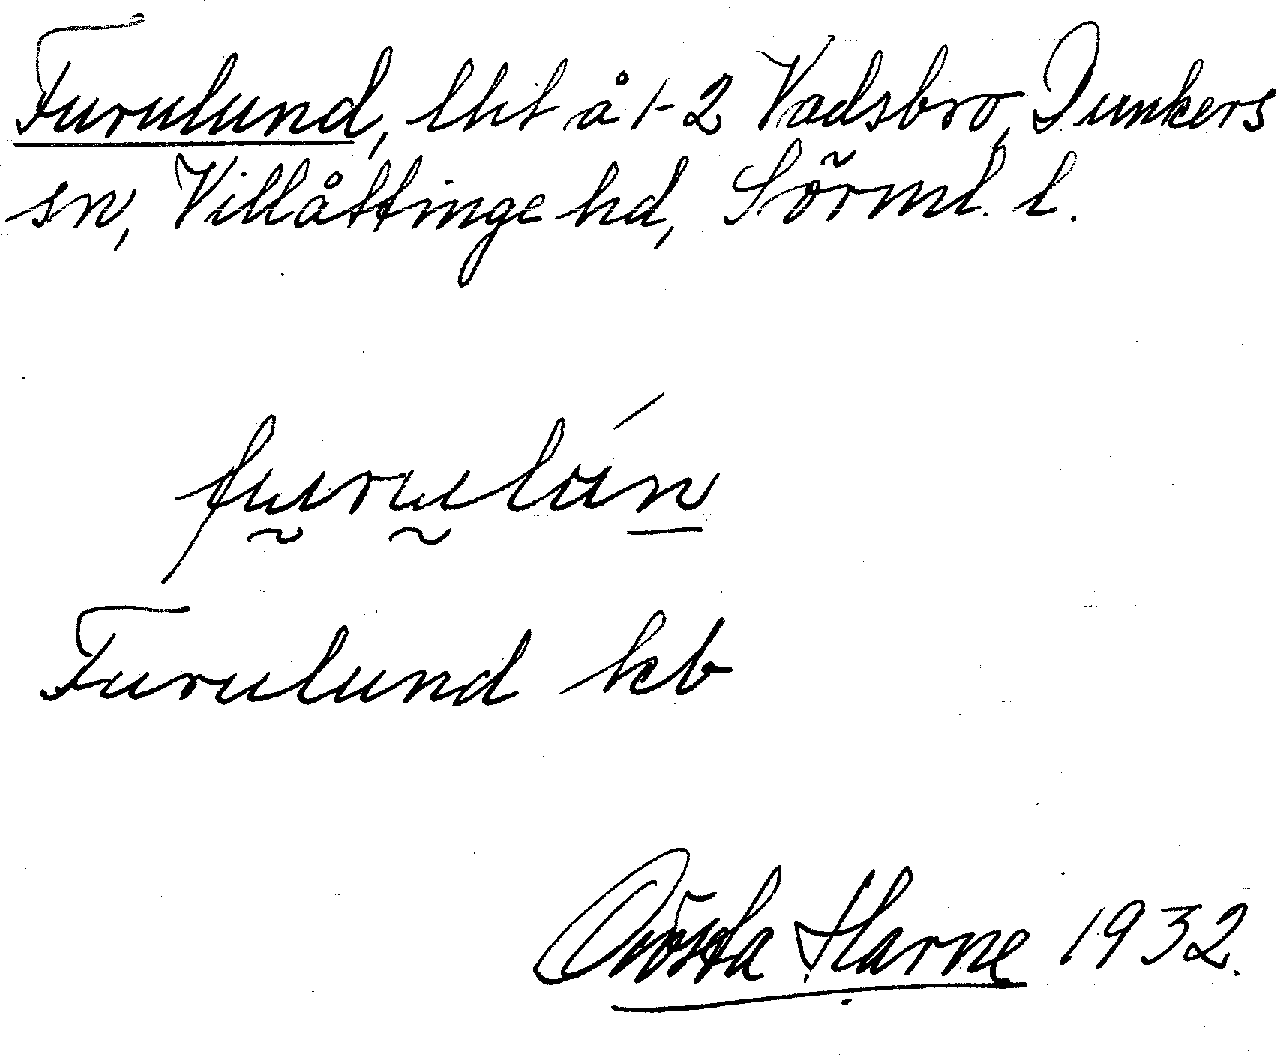 Furulund, lht å 1-2 Vadsbro, Dunkers
sn, Villåttinge hd, Sörml. l.
furulún
Furulund kb
Gösta Harne 1932.